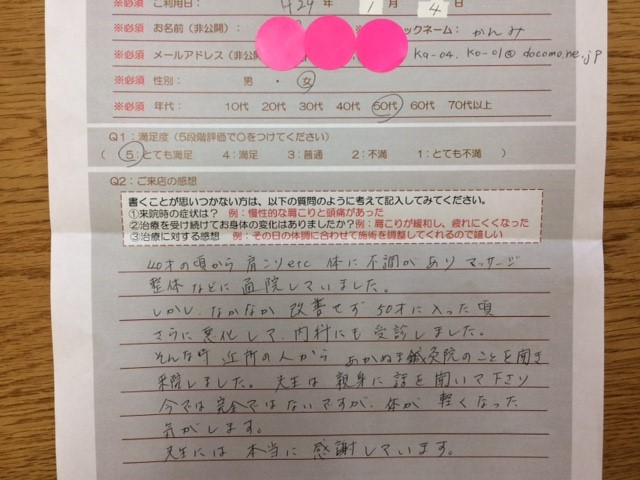 ※必須 ご利用日: H29 年 1 月 4 日
※必須 お名前(非公開) ックネーム: かんみ
※必須 メールアドレス(非公 ka-04.ko-01@docomo.ne.jp
※必須 性別: 男 ・ 女
※必須 年代: 10代 20代 30代 40代 50代 60代 70代以上
Q1:満足度(5段階評価で〇をつけてください)
( 5:とても満足 4:満足 3:普通 2:不満 1:とても不満 )
Q2:ご来店の感想
書くことが思いつかない方は、以下の質問のように考えて記入してみてください。
①来院時の症状は? 例:慢性的な肩こりと頭痛があった
②治療を受け続けてお身体の変化はありましたか?例:肩こりが緩和し、疲れにくくなった
③治療に対する感想 例:その日の体調に合わせて施術を調整してくれるので嬉しい
40才の頃から肩こりetc 体に不調があり マッサージ
整体などに通院していました。
しかし、なかなか 改善せず 50才に入った頃
さらに悪化して、内科にも 受診しました。
そんな時 近所の人から あかぬま鍼灸院のことを聞き
来院しました。 先生は 親身に 話を聞いて下さり
今では完全ではないですが、体が 軽くなった
気がします。
先生には 本当に 感謝しています。